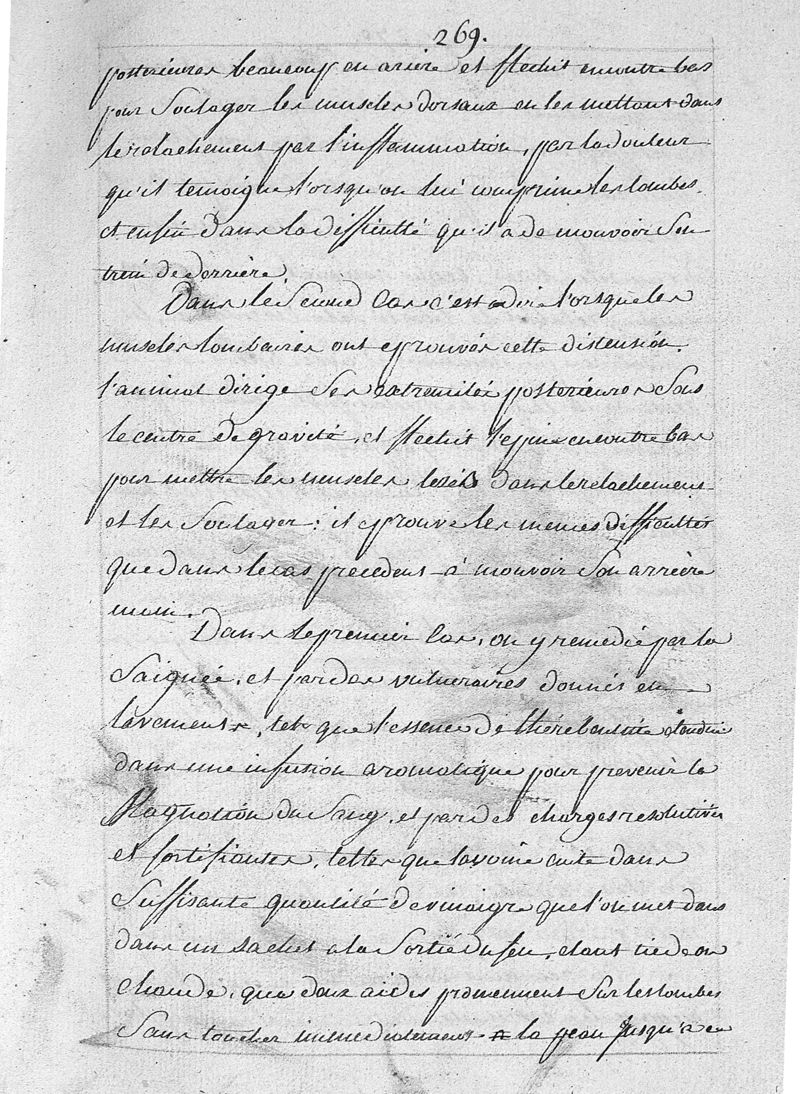 269.
posterieures beaucoup en arriere et flechit en contre bas
pour Soulager les muscles dorsaux en les mettant dans
le relachement par l'inflammation, par la douleur
qu'il temoigne lorsqu'on lui comprime les lombes.
et enfin dans la difficulté qu'il a de mouvoir Son
train de derrière.
Dans le Second Cas c'est a dire lorsque les
muscles lombaires ont eprouvés cette distension.
l'animal dirige Ses extremités posterieures Sous
le centre de gravité, et flechit l'epine en contre bas
pour mettre les muscles lezés dans le relachement
et les Soulager : il eprouve les memes difficultés
que dans le cas precedent à mouvoir Son arrière
main.
Dans le premier Cas, on y remedie par la
Saignée, et par des vulneraires donnés en
lavements, tels que l'essence de thérébentine étendue
dans une infusion aromatique pour prevenir la
Stagnation du Sang, et par des charges resolutives
et fortifiantes, telles que l'avoine cuite dans
Suffisante quantité de vinaigre que l'on met dans
dans un sachet a la Sortie du feu, étant tiede ou
chaude, que deux aides promennent Sur les lombes
Sans toucher immediatement a la peau jusqu'a ce